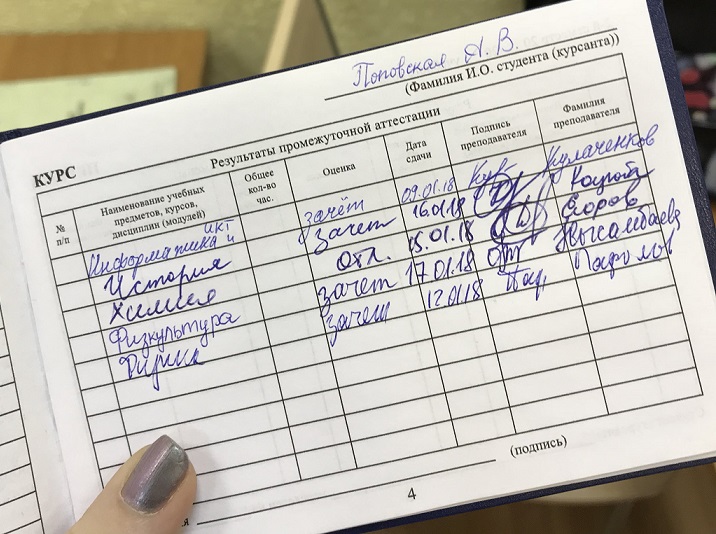 Поповская А. В.
(Фамилия И.О. студента (курсанта))
КУРС Результаты промежуточной аттестации
№ п/п Наименование учебных предметов, курсов, дисциплин (модулей) Общее кол-во час. Оценка Дата сдачи Подпись преподавателя Фамилия преподавателя
Информатика и ИКТ зачёт 09.01.18 Кулаченков
История зачет 16.01.18
Химия отл. 15.01.18 Егоров
Физкультура зачет 17.01.18
Физика зачет 12.01.18
(подпись)
4